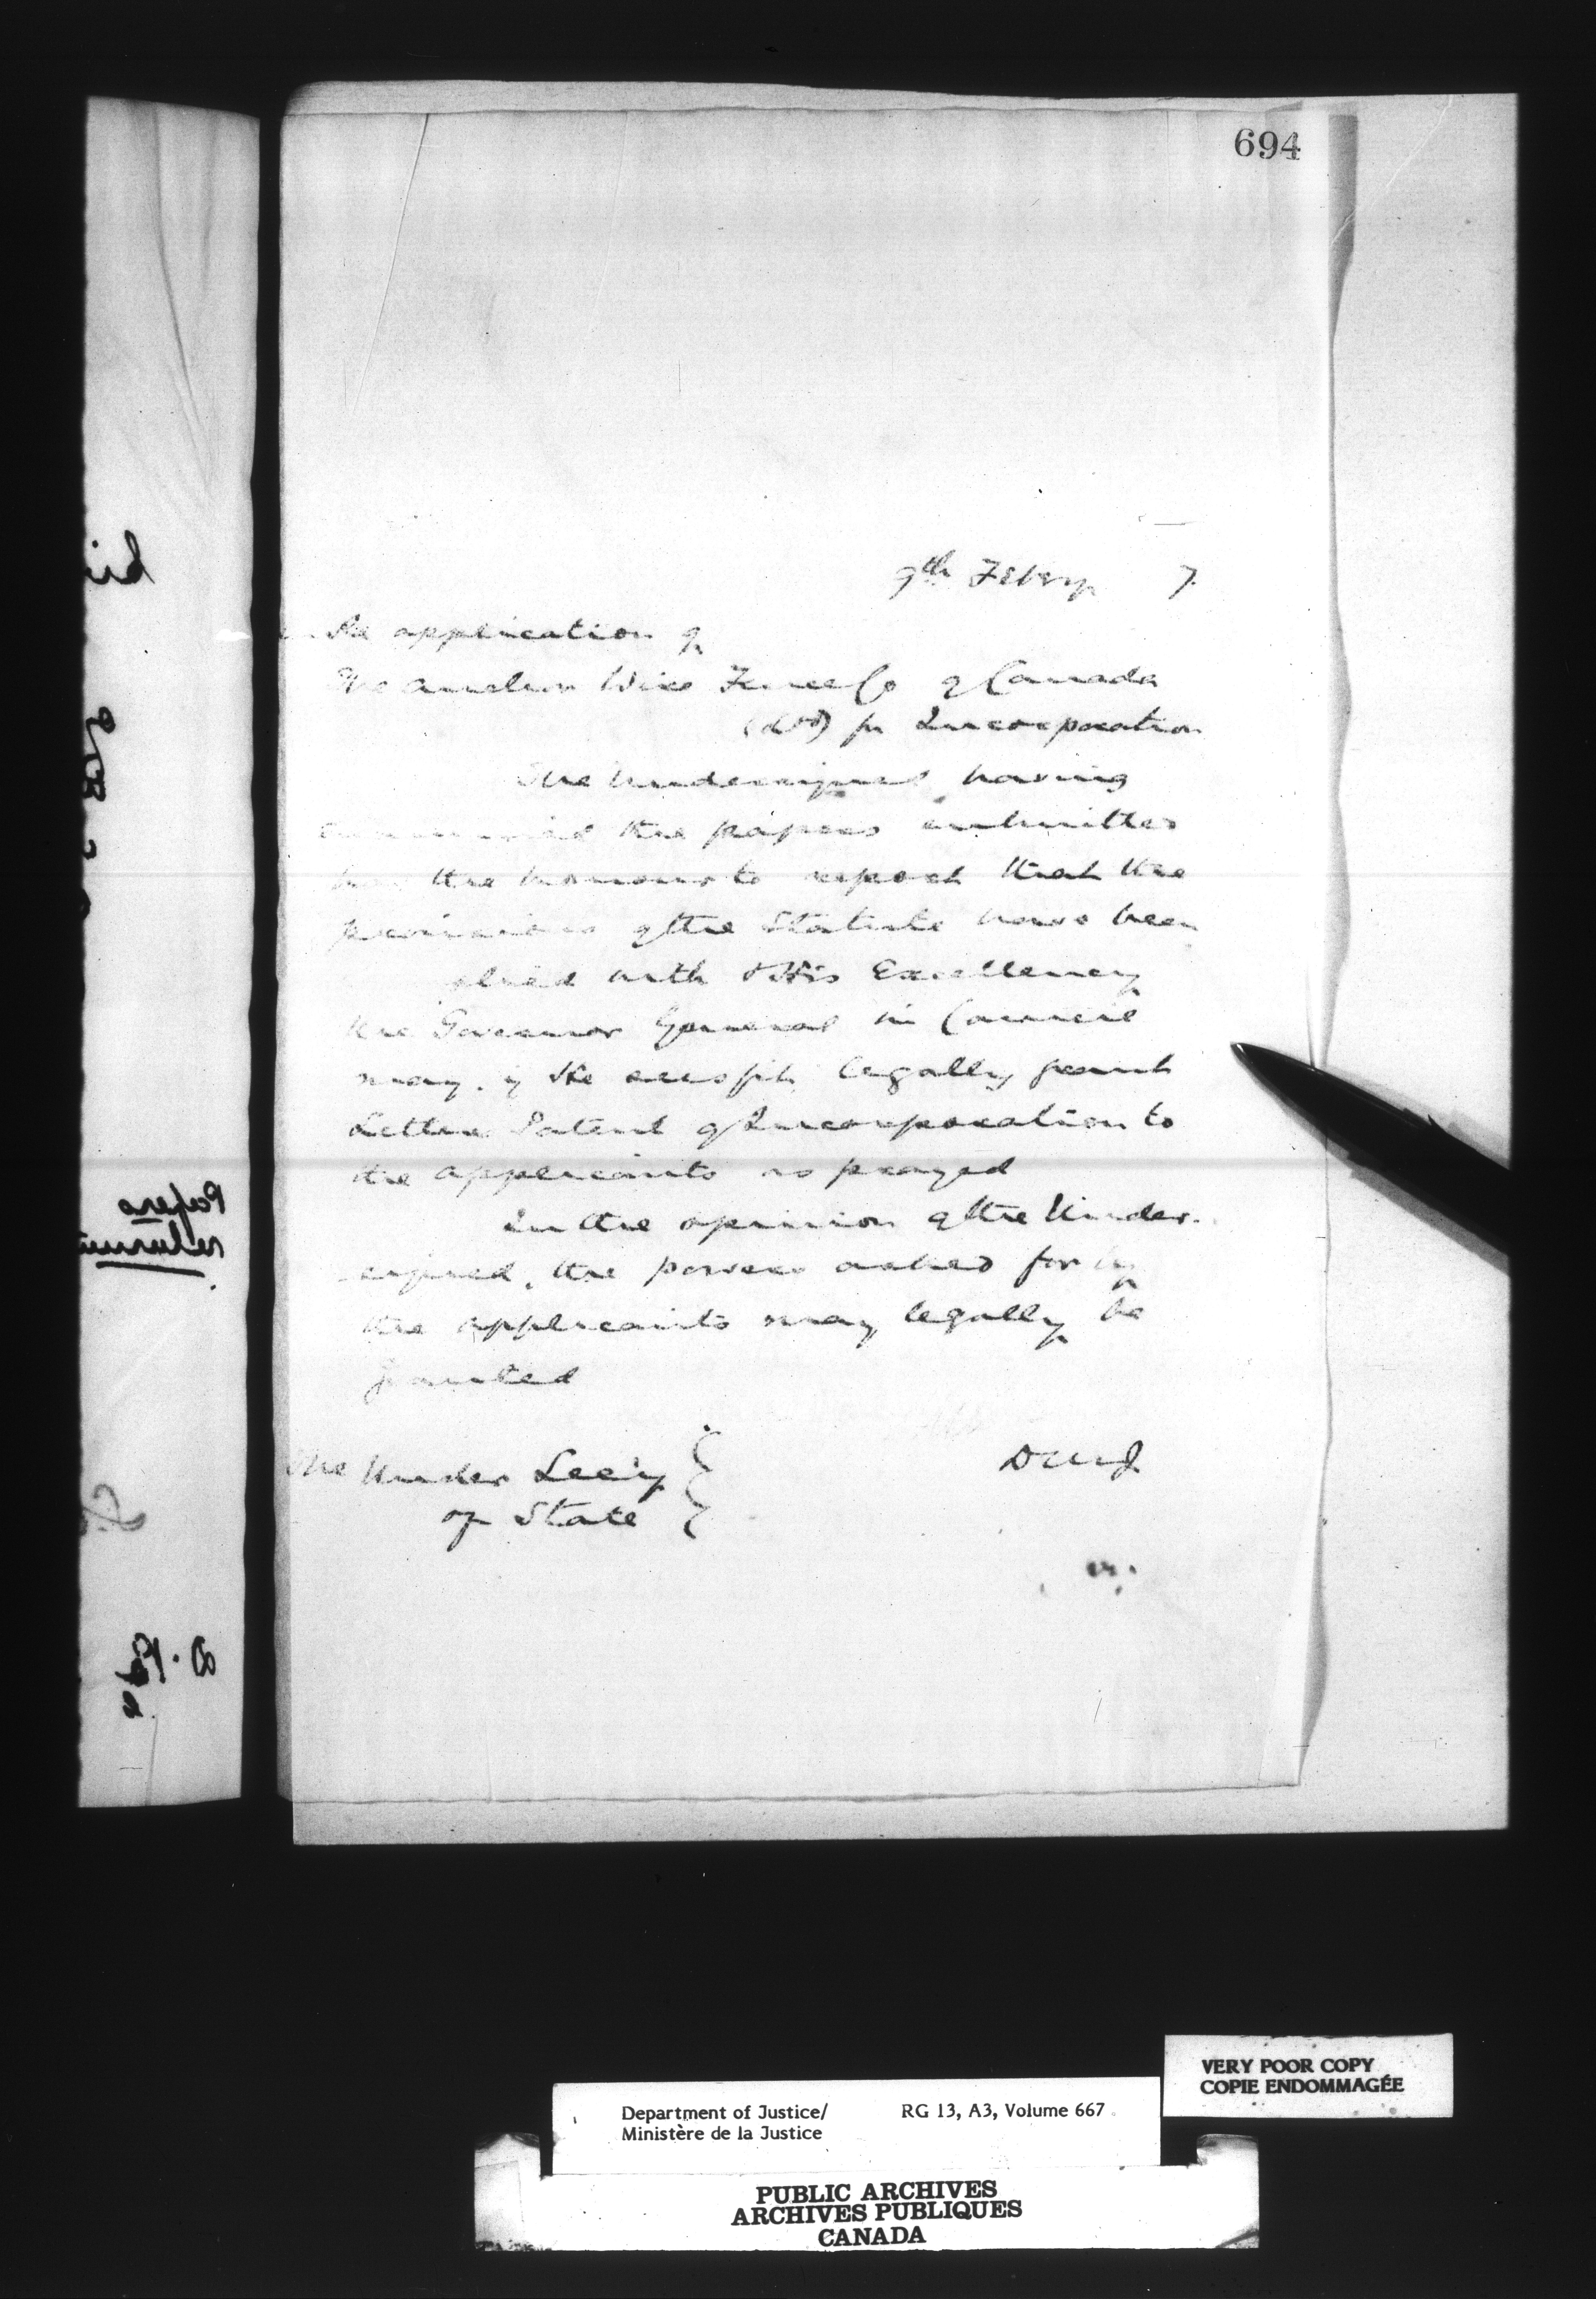 694
9th Febry 7.
Re application of
The Wire Fence Co of Canada
(Ltd) for Incorporation
The Undersigned having
the papers submitted
the honour to report that the
provisions of the Statute have been
plied with & His Excellency
the Governor General in Council
may, if He sees fit, legally grant
Letters Patent of Incorporation to
the applicants as prayed
In the opinion of the Under-
signed, the powers asked for by
the applicants may legally be
granted
The Under Sec'y
of State
Papers
returned
VERY POOR COPY
COPIE ENDOMMAGÉE
Department of Justice/ RG 13, A3, Volume 667
Ministère de la Justice
PUBLIC ARCHIVES
ARCHIVES PUBLIQUES
CANADA